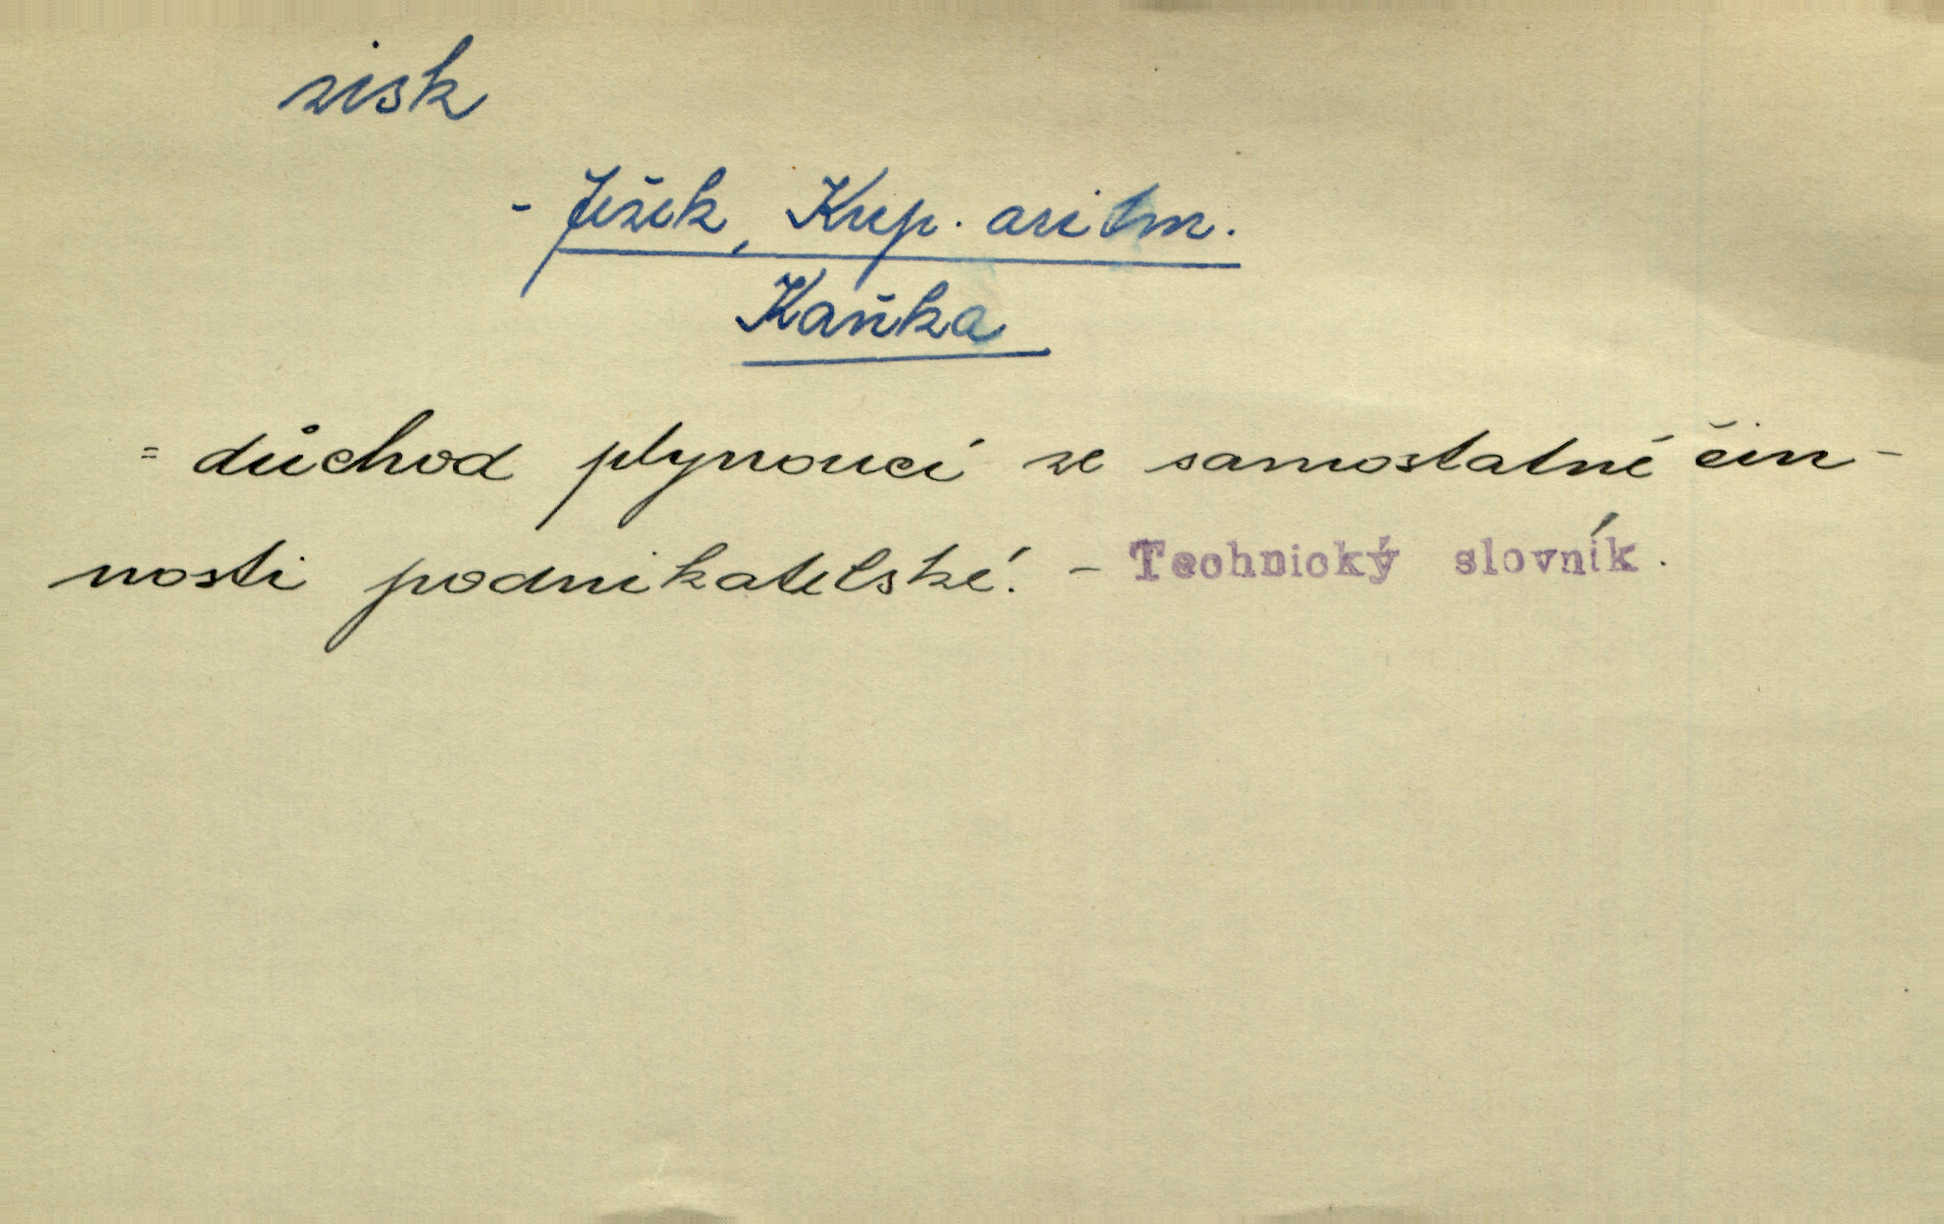 zisk
- Ježek, Kup. aritm.
Kaňka
= důchod plynoucí ze samostatné čin-
nosti podnikatelské. - Technický slovník.